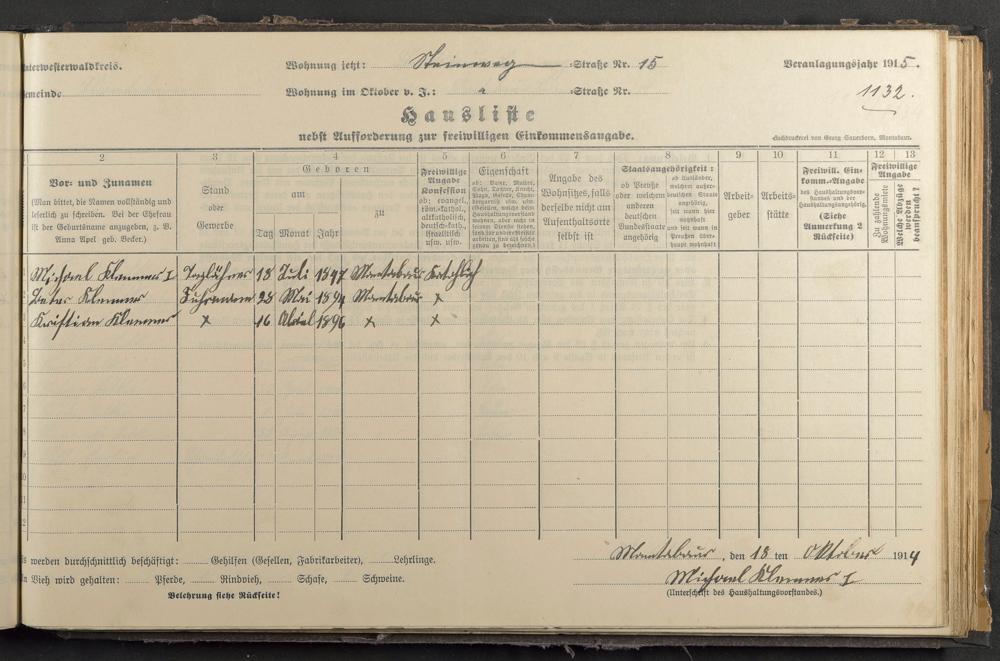 nterwesterwaldkreis.
Wohnung jetzt: Steinweg Straße Nr. 15
Veranlagungsjahr 1915.
emeinde
Wohnung im Oktober v. J.: " Straße Nr.
1132.
Hausliste
nebst Aufforderung zur freiwilligen Einkommensangabe.
Buchdruckerei von Georg Sauerborn, Montabaur.
2 3 4 5 6 7 8 9 10 11 12 13
Vor- und Zunamen
(Man bittet, die Namen vollständig und
leserlich zu schreiben. Bei der Ehefrau
ist der Geburtsname anzugeben, z. B.
Anna Apel geb. Becker.)
Stand
oder
Gewerbe
Geboren
am
zu
Tag Monat Jahr
Freiwillige
Angabe
Konfession
ob: evangel.,
röm.-kathol.,
altkatholisch,
deutsch-kath.,
israelitisch
usw. usw.
Eigenschaft
ob: Vater, Mutter,
Angabe des
Wohnsitzes, falls
derselbe nicht am
Aufenthaltsorte
selbst ist
Staatsangehörigkeit:
ob Preuße
oder welchem
anderen
deutschen
Bundesstaate
angehörig
ob Ausländer,
welchem außer-
deutschen Staate
angehörig,
seit wann hier
wohnhaft
und seit wann in
Preußen über-
haupt wohnhaft
Arbeit-
geber
Arbeits-
stätte
Freiwill. Ein-
komm.-Angabe
des Haushaltungsvor-
standes und der
Haushaltungsangehörig.
(Siehe
Anmerkung 2
Rückseite)
Freiwillige
Angabe
Zu zahlende
Wohnungsmiete
Welche Abzüge
werden
beansprucht?
Michael Klemmer I Taglöhner 18 Juli 1847 Montabaur Katholisch
Peter Klemmer Fuhrmann 28 Mai Montabaur x
Kristian Klemmer x 16 April 1896 x x
s werden durchschnittlich beschäftigt: Gehilfen (Gesellen, Fabrikarbeiter), Lehrlinge.
n Vieh wird gehalten: Pferde, Rindvieh, Schafe, Schweine.
Belehrung siehe Rückseite!
Montabaur, den 18 ten Oktober 1914
Michael Klemmer I
(Unterschrift des Haushaltungsvorstandes.)